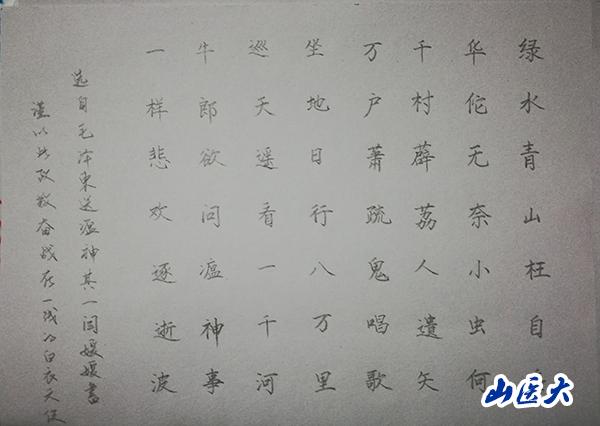 绿水青山枉自
华佗无奈小虫何
千村薜荔人遺矢
万户萧疏鬼唱歌
坐地日行八万里
巡天遥看一千河
牛郎欲问瘟神事
一样悲欢逐逝波
选自毛泽东送瘟神其一闫媛媛书
谨以此致敬奋战在一线的白衣天使
山医大